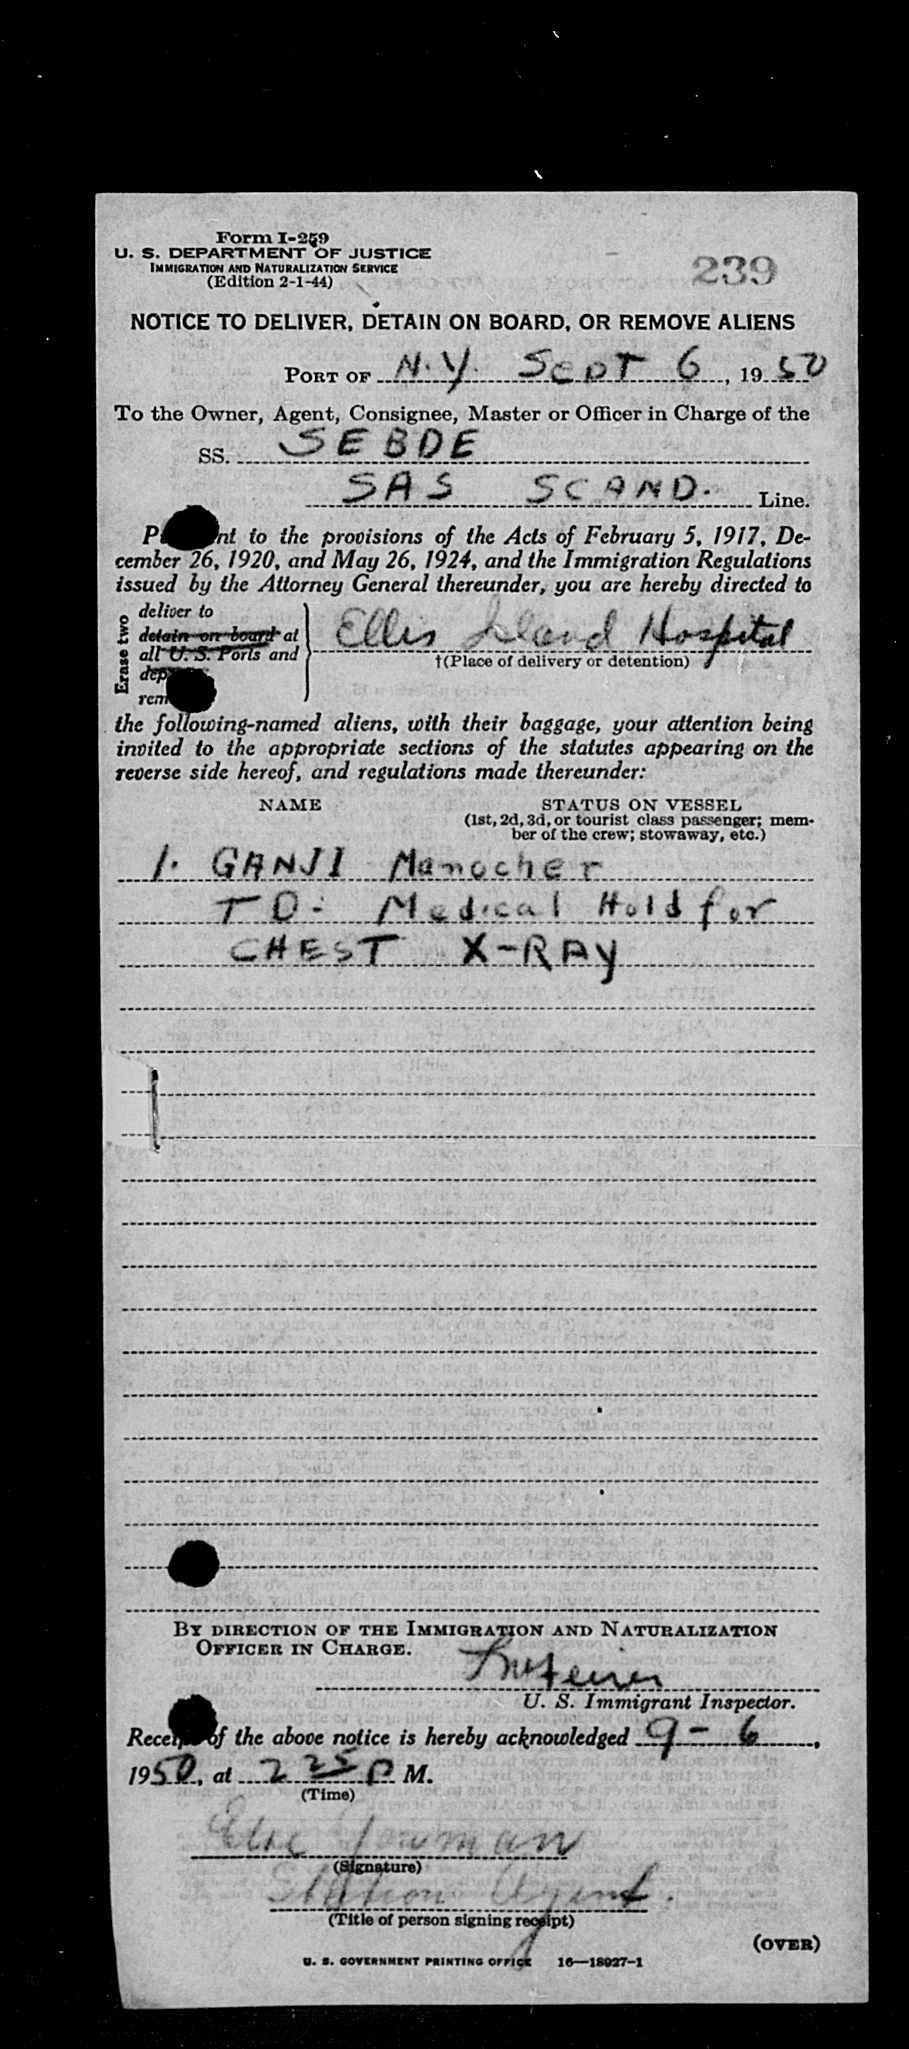 Form I-259
U. S. DEPARTMENT OF JUSTICE
IMMIGRATION AND NATURALIZATION SERVICE
(Edition 2-1-44)
239
NOTICE TO DELIVER, DETAIN ON BOARD, OR REMOVE ALIENS
PORT OF N.Y. SEPT 6, 1950
To the Owner, Agent, Consignee, Master or Officer in Charge of the
SS. SEBDE
SAS SCAND. Line.
nt to the provisions of the Acts of February 5, 1917, De-
cember 26, 1920, and May 26, 1924, and the Immigration Regulations
issued by the Attorney General thereunder, you are hereby directed to
Erase two
deliver to
detain on board at
all U. S. Ports and
Ellis Island Hospital
†(Place of delivery or detention)
the following-named aliens, with their baggage, your attention being
invited to the appropriate sections of the statutes appearing on the
reverse side hereof, and regulations made thereunder:
NAME STATUS ON VESSEL
(1st, 2d, 3d, or tourist class passenger; mem-
ber of the crew; stowaway, etc.)
1. GANJI Manocher
TD: Medical Hold for
CHEST X-RAY
BY DIRECTION OF THE IMMIGRATION AND NATURALIZATION
OFFICER IN CHARGE.
U. S. Immigrant Inspector.
Receipt of the above notice is hereby acknowledged 9-6,
1950, at 2 25 P M.
(Time)
(Signature)
Station Agent.
(Title of person signing receipt)
(OVER)
U. S. GOVERNMENT PRINTING OFFICE 16—18027-1